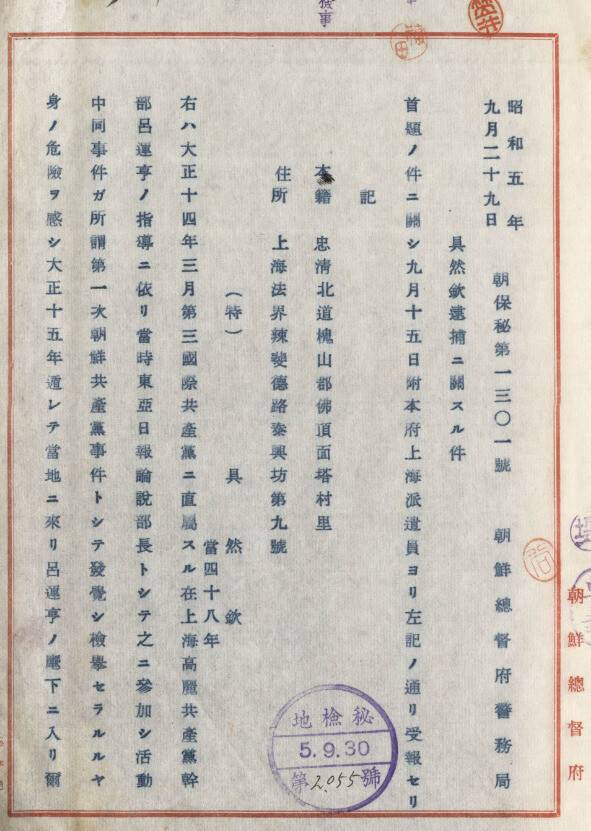 朝鮮總督府
昭和五年
九月二十九日 朝保秘第一三〇一號 朝鮮總督府警務局
具然欽逮捕ニ關スル件
首題ノ件ニ關シ九月十五日附本府上海派遣員ヨリ左記ノ通リ受報セリ
記
本籍 忠清北道槐山郡佛頂面塔村里
住所 上海法界辣斐德路泰興坊第九號
(特) 具然欽
當四十八年
右ハ大正十四年三月第三國際共產黨ニ直屬スル在上海高麗共產黨幹
部呂運亨ノ指導ニ依リ當時東亞日報論說部長トシテ之ニ參加シ活動
中同事件ガ所謂第一次朝鮮共產黨事件トシテ發覺シ檢擧セラルルヤ
身ノ危險ヲ感シ大正十五年遁レテ當地ニ來リ呂運亨ノ麾下ニ入リ爾
地檢秘
5.9.30
第2055號